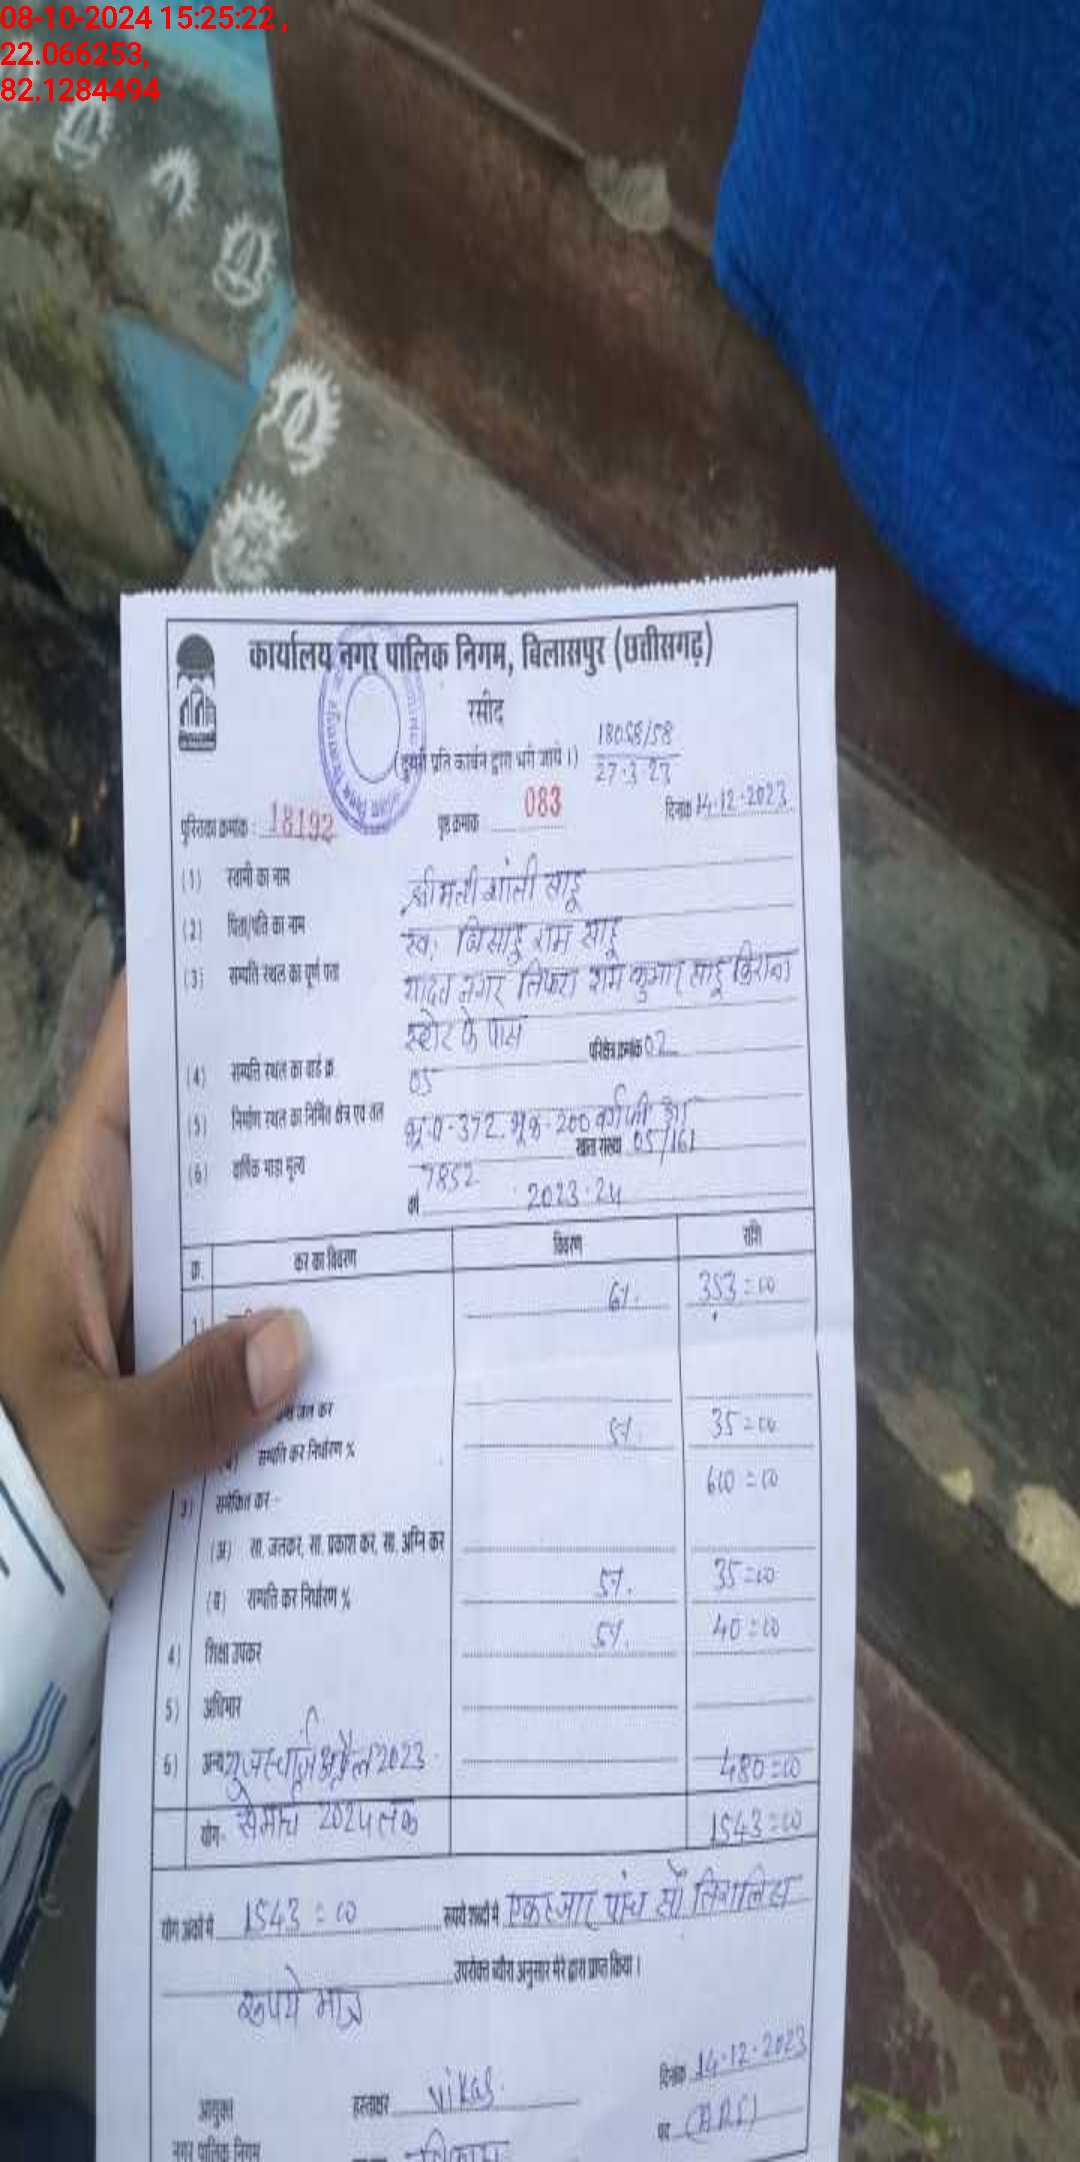 08-10-2024 15:25:22 ,
22.066253,
82.1284494
कार्यालय नगर पालिक निगम, बिलासपुर (छत्तीसगढ़)
रसीद
(दूसरी प्रति कार्बन द्वारा भरी जाये।) 18058/58
27.3.23
पुस्तिका क्रमांक : 18192 पृष्ठ क्रमांक 083 दिनांक 14.12.2023
(1) स्वामी का नाम श्रीमती शांती साहू
(2) पिता/पति का नाम स्व. बिसाहू राम साहू
(3) सम्पत्ति स्थल का पूर्ण पता यादव नगर तिफरा राम कुमार साहू किराना
स्टोर के पास
(4) सम्पत्ति स्थल का वार्ड क्र. 05 परिक्षेत्र क्रमांक 02
(5) निर्माण स्थल का निर्मित क्षेत्र एवं तल 372 200
(6) वार्षिक भाड़ा मूल्य 7852 खाता संख्या 05/161
वर्ष 2023-24
क्र. कर का विवरण विवरण राशि
1) 6%. 353=00
जल कर
सम्पत्ति कर निर्धारण % 5%. 35=00
3) समेकित कर :- 600=00
(अ) सा. जलकर, सा. प्रकाश कर, सा. अग्नि कर
(ब) सम्पत्ति कर निर्धारण % 5%. 35=00
4) शिक्षा उपकर 5%. 40=00
5) अधिभार
6) अन्य यूजर चार्ज अप्रैल 2023 480=00
योग- से मार्च 2024 तक 1543=00
योग अंकों में 1543=00 रूपये शब्दों में एक हजार पांच सौ तिरालिस
उपरोक्त ब्यौरा अनुसार मेरे द्वारा प्राप्त किया।
रूपये मात्र
दिनांक 14.12.2023
आयुक्त हस्ताक्षर Vikas
नगर पालिक निगम पद (A.R.I)